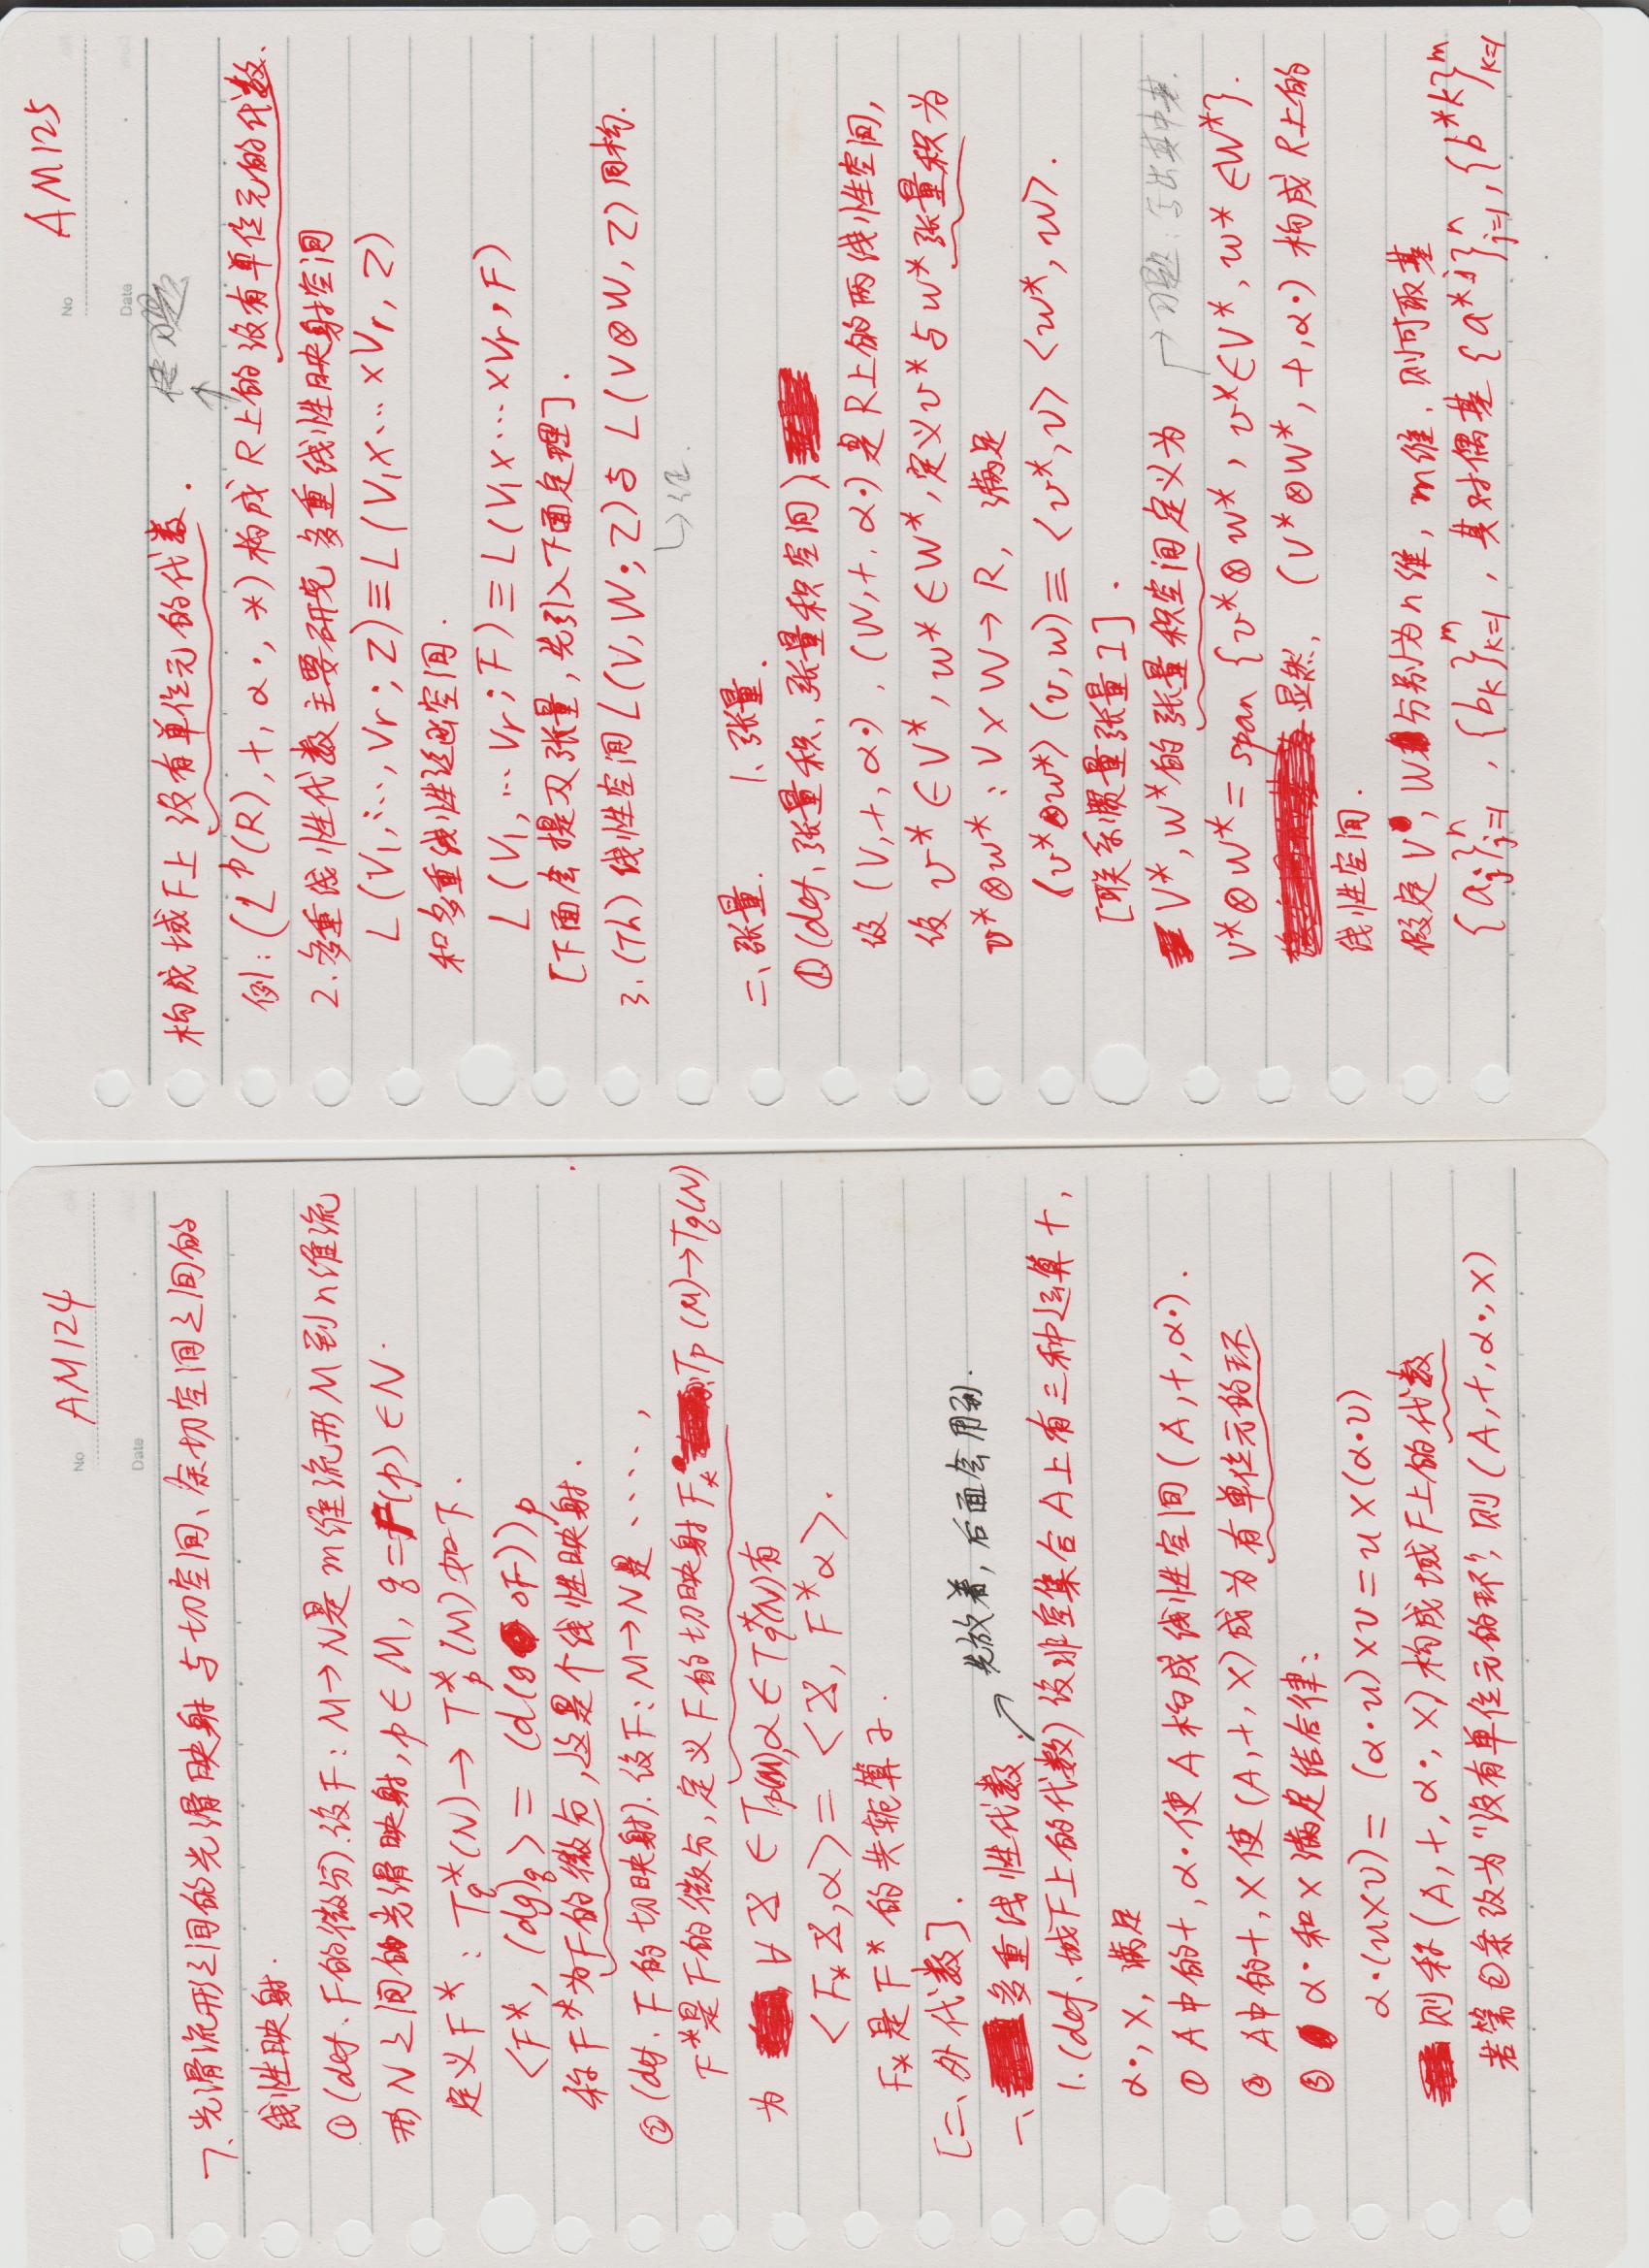 No AM124
Date
7. 光滑流形之间的光滑映射与切空间、余切空间之间的
线性映射.
① (def. F的微分). 设F: M→N是m维流形M到n维流
形N之间的光滑映射, p∈M, q=F(p)∈N.
定义F* : T*q(N)→ T*p(M) 如下.
<F*, (dg)q> = (d(g∘F))p
称F*为F的微分, 这是个线性映射.
② (def. F的切映射). 设F: M→N是 ····,
F*是F的微分, 定义F的切映射F* : Tp(M)→Tq(N)
为 ∀ X ∈Tp(M), α∈T*q(N)有
<F* X, α> = <X, F*α>.
F*是F*的共轭算子.
[二、外代数].
先放着, 后面会用到.
一、多重线性代数.
1. (def、域F上的代数) 设非空集合A上有三种运算+,
α·, ×, 满足
① A中的+, α·使A构成线性空间(A, +, α·).
② A中的+, ×使(A, +, ×)成为有单位元的环
③ α·和×满足结合律:
α·(u×v) = (α·u)×v = u×(α·v)
则称(A, +, α·, ×)构成域F上的代数
若第②条改为"没有单位元的环", 则(A, +, α·, ×)
No AM125
Date
构成域F上没有单位元的代数.
习题
例: (L^p(R), +, α·, *) 构成R上的没有单位元的代数.
2. 多重线性代数主要研究多重线性映射空间
L(V₁, ···, Vr; Z) ≡ L(V₁×···×Vr, Z)
和多重线性泛函空间.
L(V₁, ··· Vr; F) ≡ L(V₁×···×Vr, F)
[下面会提及张量, 先引入下面定理].
3. (Th) 线性空间L(V, W; Z)与 L(V⊗W, Z)同构.
↳证.
二、张量. 1. 张量.
① (def、张量积、张量积空间)
设(V, +, α·), (W, +, α·)是R上的两线性空间,
设 v*∈V*, w*∈W*, 定义v*与w*张量积为
v*⊗w* : V×W→R, 满足
(v*⊗w*)(v, w) ≡ <v*, v> <w*, w>.
[联系惯量张量I].
V*, W*的张量积空间定义为
→习题: 写出其中基.
V*⊗W* = span {v*⊗w*, v*∈V*, w*∈W*}.
显然, (V*⊗W*, +, α·) 构成R上的
线性空间.
假定V, W分别为n维, m维, 则可取基
{aj}ⁿj=1, {bk}ᵐk=1, 其对偶基{a*ʲ}ⁿj=1, {b*ᵏ}ᵐk=1